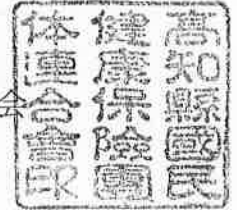 会
高知縣國民
健康保險團
体連合會印